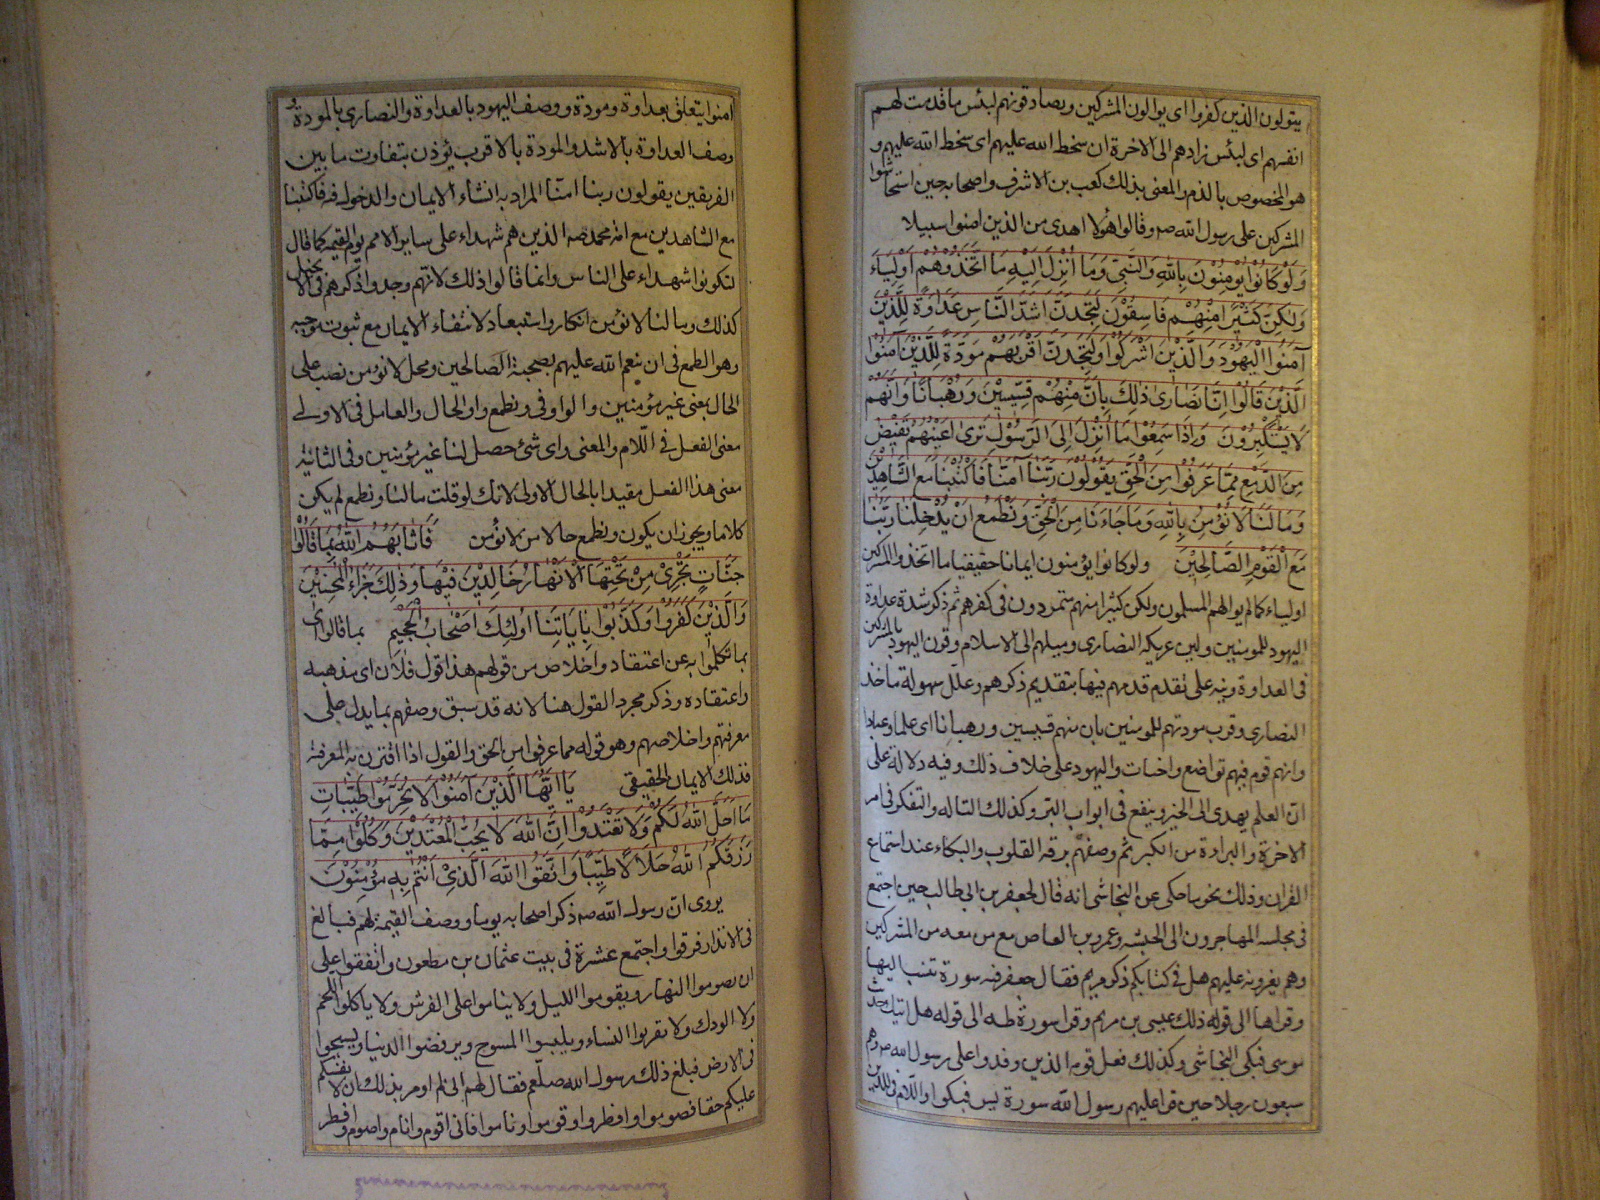 يتولون الذين كفروا اى يوالون المشركين ويصادقونهم لبئس ما قدمت لهم
انفسهم اى لبئس زادهم الى الاخرة ان سخط الله عليهم اى سخط الله عليهم و
هو المخصوص بالذم والمعنى بذلك كعب بن الاشرف واصحابه حين استجاشوا
المشركين على رسول الله صه وقالوا هؤلا اهدى من الذين امنوا سبيلا
وَلَوْ كَانُوا يُومِنُوْنَ بِاللهِ وَالنَّبِىِّ وَمَا اُنْزِلَ اِلَيْهِ مَا اتَّخَذُوْهُمْ اَوْلِيَاءَ
وَلٰكِنَّ كَثِيْرًا مِنْهُمْ فَاسِقُوْنَ لَتَجِدَنَّ اَشَدَّ النَّاسِ عَدَاوَةً لِلَّذِيْنَ
آمَنُوا الْيَهُوْدَ وَالَّذِيْنَ اَشْرَكُوْا وَلَتَجِدَنَّ اَقْرَبَهُمْ مَوَدَّةً لِلَّذِيْنَ آمَنُوْا
الَّذِيْنَ قَالُوْا اِنَّا نَصَارٰى ذٰلِكَ بِاَنَّ مِنْهُمْ قِسِّيْسِيْنَ وَرُهْبَانًا وَاَنَّهُمْ
لَا يَسْتَكْبِرُوْنَ وَاِذَا سَمِعُوْا مَا اُنْزِلَ اِلَى الرَّسُوْلِ تَرٰى اَعْيُنَهُمْ تَفِيْضُ
مِنَ الدَّمْعِ مِمَّا عَرَفُوْا مِنَ الْحَقِّ يَقُوْلُوْنَ رَبَّنَا آمَنَّا فَاكْتُبْنَا مَعَ الشَّاهِدِيْنَ
وَمَا لَنَا لَا نُؤْمِنُ بِاللهِ وَمَا جَاءَنَا مِنَ الْحَقِّ وَنَطْمَعُ اَنْ يُدْخِلَنَا رَبُّنَا
مَعَ الْقَوْمِ الصَّالِحِيْنَ ولو كانوا يؤمنون ايمانا حقيقيا ما اتخذوا المشركين
اولياء كما لم يوالهم المسلمون ولكن كثيرا منهم متمردون فى كفرهم ثم ذكر شدة عداوة
اليهود للمومنين ولين عريكه النصارى وميلهم الى الاسلام وقرن اليهود بالمشركين
فى العداوة ونبه على تقدم قدمهم فيها بتقديم ذكرهم وعلل سهولة ماخذ
النصارى وقرب مودتهم للمومنين بان منهم قسيسين ورهبانا اى علما وعبادا
وانهم قوم فيهم تواضع واخبات واليهود على خلاف ذلك وفيه دلالة على
ان العلم يهدى الى الخير وينفع فى ابواب البر وكذلك التاله والتفكر فى امر
الاخرة والبراءة من الكبر ثم وصفهم برقة القلوب والبكاء عند استماع
القران وذلك نحو ما حكى عن النجاشى انه قال لجعفر بن ابى طالب حين اجتمع
فى مجلسه المهاجرون الى الحبشه وعمرو بن العاص مع من معه من المشركين
وهم يغرونه عليهم هل فى كتابكم ذكر مريم فقال جعفر فيه سورة تنسب اليها
وقراها الى قوله ذلك عيسى بن مريم وقرا سورة طه الى قوله هل اتيك حديث
موسى فبكى النجاشى وكذلك فعل قومه الذين وفدوا على رسول الله صه وهم
سبعون رجلا حين قرا عليهم رسول الله سورة يس فبكوا واللام فى للذين
امنوا يتعلق بعداوة ومودة ووصف اليهود بالعداوة والنصارى بالمودة و
وصف العداوة بالاشد والمودة بالاقرب يؤذن بتفاوت ما بين
الفريقين يقولون ربنا امنا المراد به انشاء الايمان والدخول فيه فاكتبنا
مع الشاهدين مع امة محمد صه الذين هم شهداء على ساير الامم يوم القيمه كما قال
لتكونوا شهداء على الناس وانما قالوا ذلك لانهم وجدوا ذكرهم فى الانجيل
كذلك وما لنا لا نؤمن انكار واستبعاد لانتفاء الايمان مع ثبوت موجبه
وهو الطمع فى ان ينعم الله عليهم بصحبة الصالحين ومحل لا نؤمن نصب على
الحال بمعنى غير مؤمنين والواو فى ونطمع واو الحال والعامل فى الاولى
معنى الفعل فى اللام والمعنى واى شئ حصل لنا غير مؤمنين وفى الثانية
معنى هذا الفعل مقيدا بالحال الاولى لانك لو قلت ما لنا ونطمع لم يكن
كلاما ويجوز ان يكون ونطمع حالا من لا نؤمن فَاَثَابَهُمُ اللهُ بِمَا قَالُوْا
جَنَّاتٍ تَجْرِىْ مِنْ تَحْتِهَا الْاَنْهَارُ خَالِدِيْنَ فِيْهَا وَذٰلِكَ جَزَاءُ الْمُحْسِنِيْنَ
وَالَّذِيْنَ كَفَرُوْا وَكَذَّبُوْا بِاٰيَاتِنَا اُولٰئِكَ اَصْحَابُ الْجَحِيْمِ بما قالوا اى
بما تكلموا به عن اعتقاد واخلاص من قولهم هذا قول فلان اى مذهبه
واعتقاده وذكر مجرد القول هنا لانه قد سبق وصفهم بما يدل على
معرفتهم واخلاصهم وهو قوله مما عرفوا من الحق والقول اذا اقترن به المعرفة
فذلك الايمان الحقيقى يَا اَيُّهَا الَّذِيْنَ آمَنُوْا لَا تُحَرِّمُوْا طَيِّبَاتِ
مَا اَحَلَّ اللهُ لَكُمْ وَلَا تَعْتَدُوْا اِنَّ اللهَ لَا يُحِبُّ الْمُعْتَدِيْنَ وَكُلُوْا مِمَّا
رَزَقَكُمُ اللهُ حَلَالًا طَيِّبًا وَاتَّقُوا اللهَ الَّذِىْ اَنْتُمْ بِهِ مُؤْمِنُوْنَ
يروى ان رسول الله صه ذكر اصحابه يوما ووصف القيمة لهم فبالغ
فى الانذار فرقوا واجتمع عشرة فى بيت عثمان بن مظعون واتفقوا على
ان يصوموا النهار ويقوموا الليل ولا يناموا على الفرش ولا ياكلوا اللحم
ولا الودك ولا يقربوا النساء ويلبسوا المسوح ويرفضوا الدنيا ويسيحوا
فى الارض فبلغ ذلك رسول الله صلعم فقال لهم انى لم اومر بذلك ان لانفسكم
عليكم حقا فصوموا وافطروا وقوموا وناموا فانى اقوم وانام واصوم وافطر